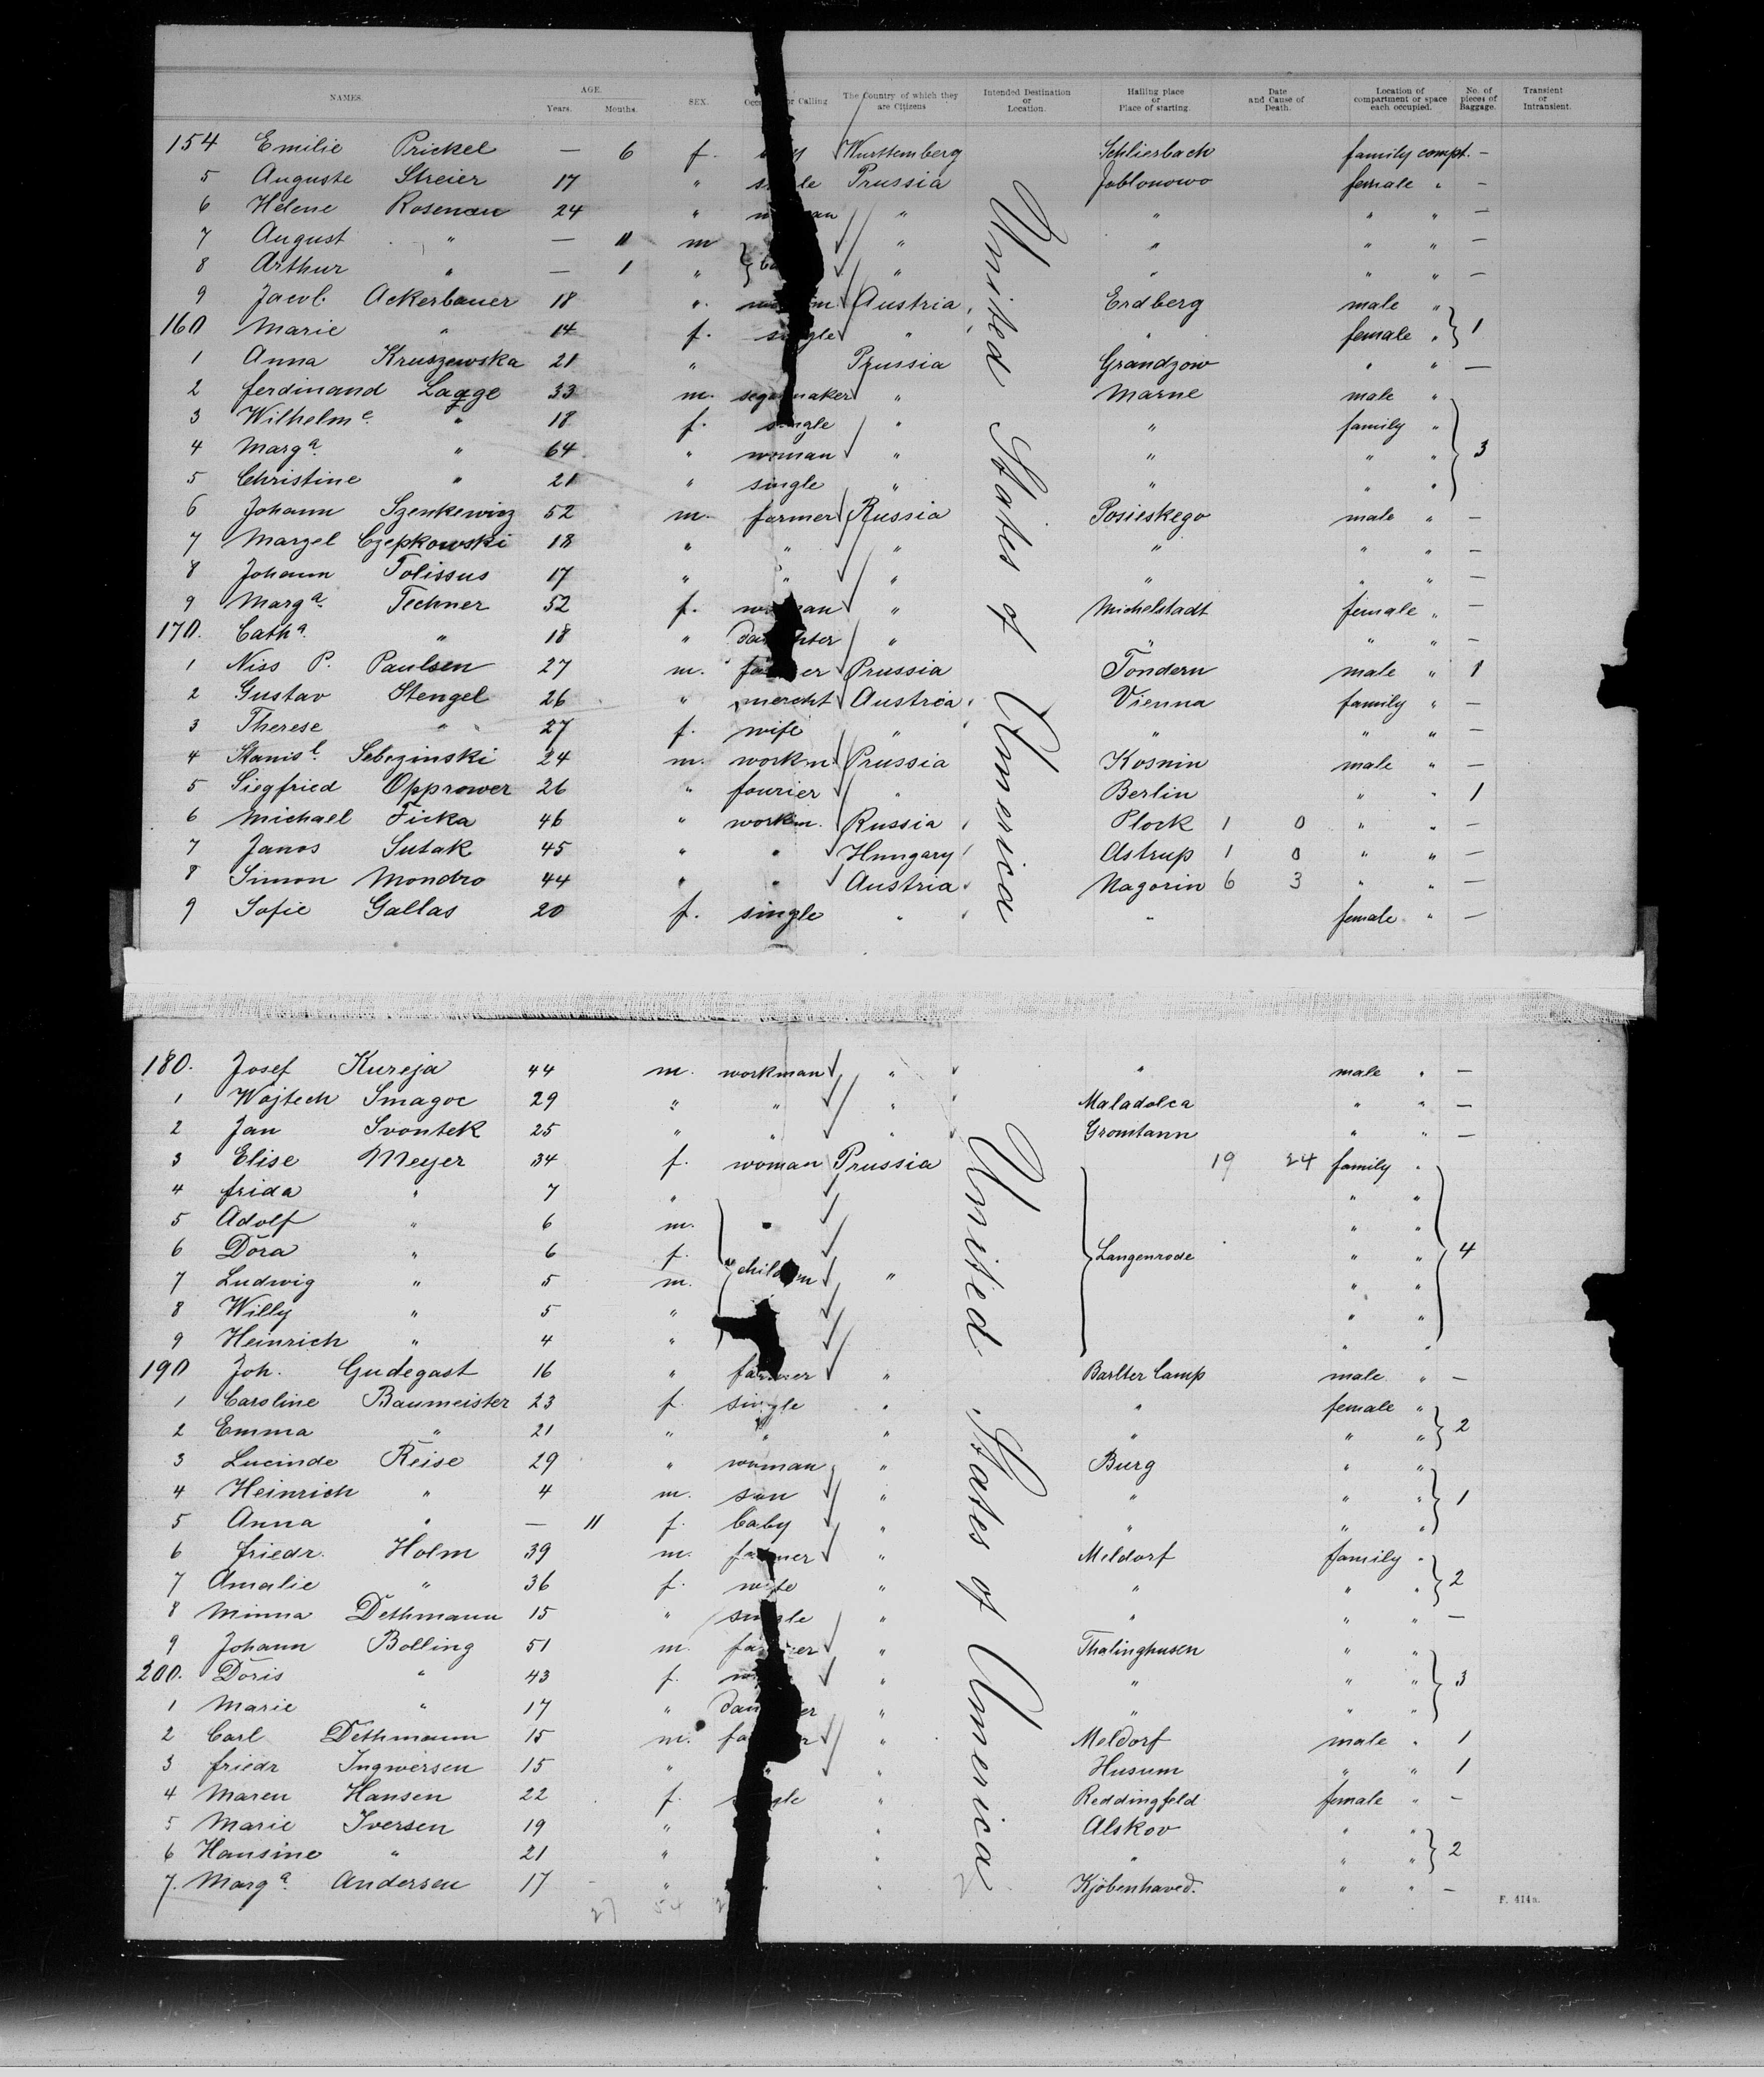 NAMES. AGE. Years. Months. SEX. Occ or Calling The Country of which they are Citizens Intended Destination or Location. Hailing place or Place of starting. Date and Cause of Death. Location of compartment or space each occupied. No. of pieces of Baggage. Transient or Intransient.
154 Emilie Prickel — 6 f. Wurttemberg Schlierbach family compt. —
5 Auguste Streier 17 " single Prussia Jablonowo female " —
6 Helene Rosenau 24 " woman " " " " —
7 August " — 11 m " " " " —
8 Arthur " — 1 " " " " " —
9 Jacob Ackerbauer 18 " Austria Erdberg male "
160 Marie " 14 f. single " " female " 1
1 Anna Kruszewska 21 " Prussia Grandzow " " —
2 ferdinand Laage 33 m. segarmaker " Marne male "
3 Wilhelme. " 18 f. single " " family "
4 Marga. " 64 " woman " " " " 3
5 Christine " 21 " single " " " "
6 Johann Szenkewicz 52 m. farmer Russia Posieskego male " —
7 Marzel Czepkowski 18 " " " " " " —
8 Johann Tolissus 17 " " " " " " —
9 Marga. Techner 52 f. woman " Michelstadt female " —
170. Catha. " 18 " daughter " " " " —
1 Niss P. Paulsen 27 m. farmer Prussia Tondern male " 1
2 Gustav Stengel 26 " mercht Austria Vienna family " —
3 Therese " 27 f. wife " " " " —
4 Stanisl. Sebezinski 24 m. workm Prussia Kosnin male " —
5 Siegfried Opprower 26 " fourier " Berlin " " 1
6 Michael Ficka 46 " workm. Russia Plock 1 0 " " —
7 Janos Sutak 45 " " Hungary Astrup 1 0 " " —
8 Simon Mondro 44 " " Austria Nagorin 6 3 " " —
9 Sofie Gallas 20 f. single " " female " —
United States of America
180. Josef Kureja 44 m. workman " " male " —
1 Wojtech Smagoc 29 " " " Maladolca " " —
2 Jan Svontek 25 " " " Gromtann " " —
3 Elise Meyer 34 f. woman Prussia 19 24 family "
4 frida " 7 " " "
5 Adolf " 6 m. " " "
6 Dora " 6 f. Langenrode " " 4
7 Ludwig " 5 m. children " " "
8 Willy " 5 " " "
9 Heinrich " 4 " " "
190 Joh. Gudegast 16 " farmer " Barlter Camp male " —
1 Caroline Baumeister 23 f. single " " female "
2 Emma " 21 " " " " " " 2
3 Lucinde Reise 29 " woman " Burg " "
4 Heinrich " 4 m. son " " " " 1
5 Anna " — 11 f. baby " " " "
6 friedr. Holm 39 m. farmer " Meldorf family "
7 Amalie " 36 f. wife " " " " 2
8 Minna Dethmann 15 " single " " " " —
9 Johann Bolling 51 m. farmer " Thalinghusen " "
200. Doris " 43 f. " " " " 3
1 Marie " 17 " daughter " " " "
2 Carl Dethmann 15 m. farmer " Meldorf male " 1
3 friedr Ingwersen 15 " " " Husum " " 1
4 Maren Hansen 22 f. single " Reddingfeld female " —
5 Marie Iversen 19 " " Alskov " "
6 Hansine " 21 " " " " " 2
7. Marga. Andersen 17 " " " Kjöbenhaved. " " —
United States of America
27 54
F. 414a.